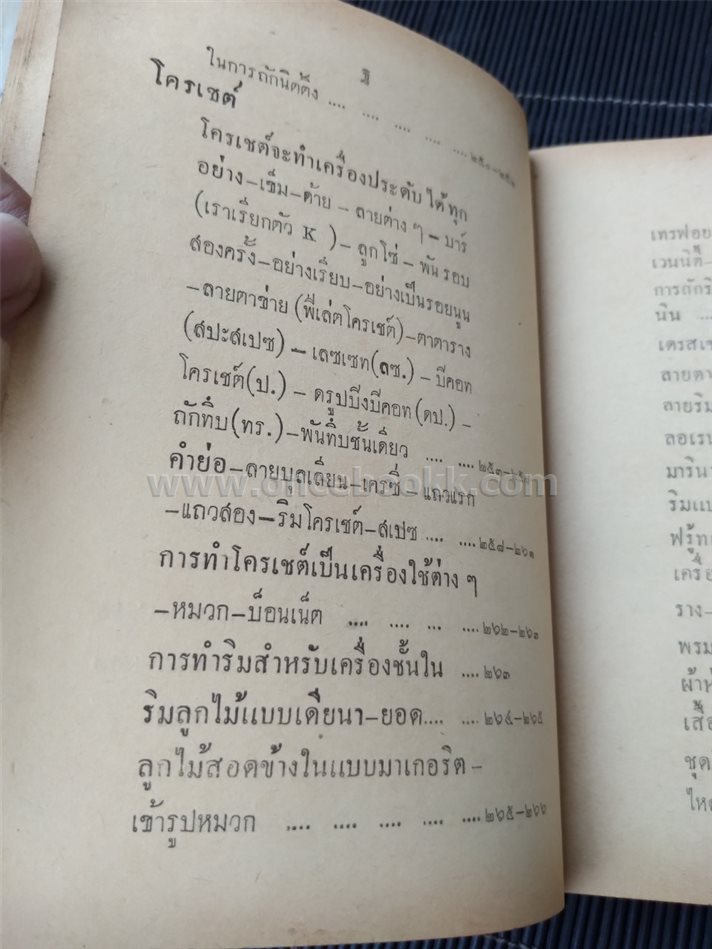 ในการถักนิตติ้ง .... .... .... .... ....๒๕๐-๒๕๑
โครเชต์
โครเชต์จะทำเครื่องประดับได้ทุก
อย่าง-เข็ม-ด้าย-ลายต่าง ๆ-บาร์
(เราเรียกตัว K )-ลูกโซ่-พันรอบ
สองครั้ง-อย่างเรียบ-อย่างเป็นรอยนูน
-ลายตาข่าย(พี่เล่ตโครเชต์)-ตาตาราง
(สปะสเปซ)-เลซเซท(ลซ.)-บีคอท
โครเชต์(ป.)-ดรูปบึงบีคอท(ดป.)-
ถักทึบ(ทร.)-พันทึบชั้นเดียว .... ....
คำย่อ-ลายบุลเลี่ยน-เครซี่-แถวแรก
-แถวสอง-ริมโครเชต์-สเปซ .... ....๒๕๘-๒๖๑
การทำโครเชต์เป็นเครื่องใช้ต่าง ๆ
-หมวก-บ็อนเน็ต .... .... ... ....๒๖๒-๒๖๓
การทำริมสำหรับเครื่องชั้นใน ....๒๖๓
ริมลูกไม้แบบเดียนา-ยอด.... ....๒๖๔-๒๖๕
ลูกไม้สอดข้างในแบบมาเกอริต-
เข้ารูปหมวก .... .... .... .... ....๒๖๕-๒๖๖
www.oncebookk.com
เทรฟอย
เวนนิตี้-
การถักริ
นิน ...
เดรสเช
ลายตา
ลายริม
ลอเรน
มารินา
ริมแบ
ฟรู้ทล
เครื่อ
ราง-
พรม
ผ้าห่
เสื้อ
ชุด
ไหด